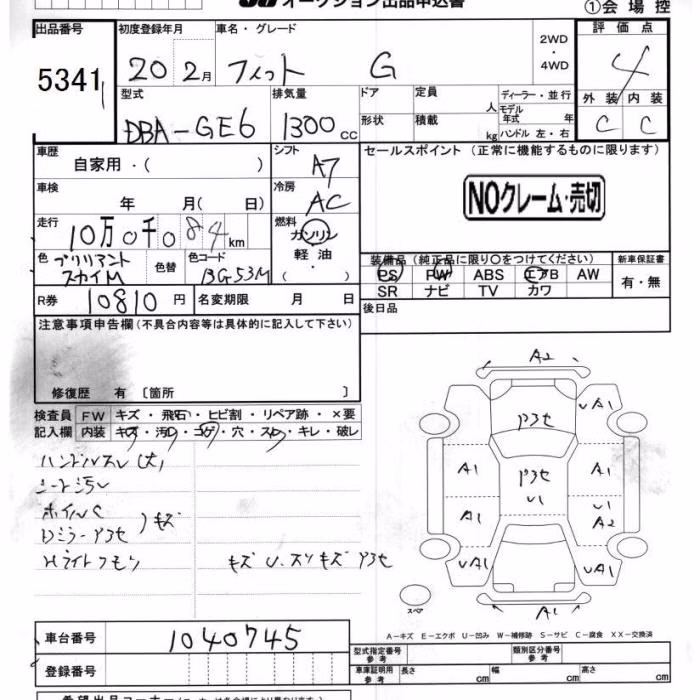 オークション出品申込書
①会場控
出品番号 初度登録年月 車名・グレード 2WD・4WD 評価点
5341 20 2月 フィット G 4
型式 排気量 ドア 定員 人 ディーラー・並行 外装 内装
モデル年式 年
DBA-GE6 1300cc 形状 積載 kg ハンドル 左・右 C C
車歴 自家用・( ) シフト A7 セールスポイント (正常に機能するものに限ります)
車検 年 月( 日) 冷房 AC NOクレーム・売切
走行 10万0千084km 燃料 ガソリン 軽油・( )
色 ブリリアントスカイM 色替 色コード BG53M 装備品 (純正品に限り〇をつけてください) 新車保証書
PS PW ABS エアB AW 有・無
SR ナビ TV カワ
R券 10810円 名変期限 月 日 後日品
注意事項申告欄(不具合内容等は具体的に記入して下さい)
修復歴 有 〔箇所 〕
検査員 FW キズ・飛石・ヒビ割・リペア跡・×要
記入欄 内装 キズ・汚レ・コゲ・穴・スレ・キレ・破レ
ハンドルスレ(大)
シート汚レ
ホイルC
Dミラーアヨセ キズ
Hライトクモリ キズ U.スリキズ アヨセ
A2
UA1 アヨセ
A1 アヨセ U1 A1
A1 U1 A2
UA1 UA1
A1
スペア
A-キズ E-エクボ U-凹み W-補修跡 S-サビ C-腐食 XX-交換済
車台番号 1040745
型式指定番号 参考 類別区分番号 参考
登録番号
車庫証明用 参考 長さ cm 幅 cm 高さ cm